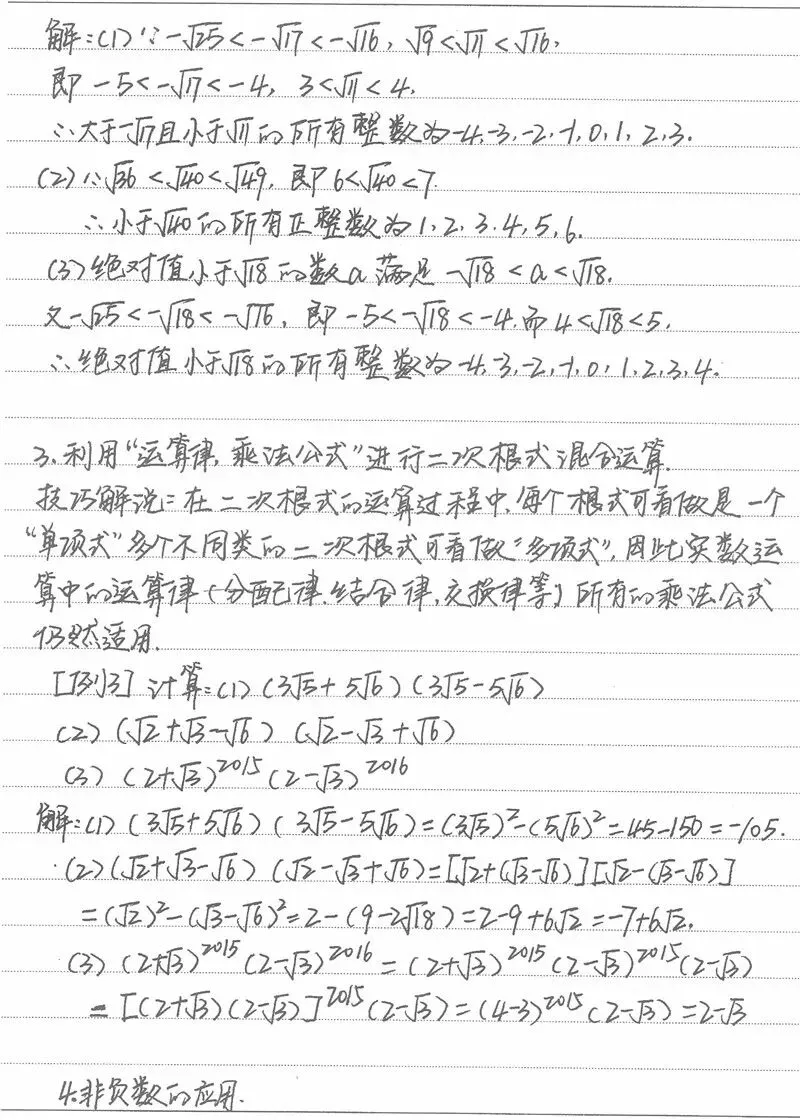 解:(1)∵-√25<-√17<-√16, √9<√11<√16,
即-5<-√17<-4, 3<√11<4,
∴大于-√17且小于√11的所有整数为-4,-3,-2,-1,0,1,2,3.
(2)∵√36<√40<√49, 即6<√40<7.
∴小于√40的所有正整数为1,2,3,4,5,6.
(3)绝对值小于√18的数a满足-√18<a<√18.
又-√25<-√18<-√16, 即-5<-√18<-4.而4<√18<5.
∴绝对值小于√18的所有整数为-4,-3,-2,-1,0,1,2,3,4.
3.利用“运算律,乘法公式”进行二次根式混合运算.
技巧解说:在二次根式的运算过程中,每个根式可看做是一个
“单项式”多个不同类的二次根式可看做“多项式”,因此实数运
算中的运算律(分配律,结合律,交换律等)所有的乘法公式
仍然适用.
[例3] 计算:(1) (3√5+5√6)(3√5-5√6)
(2) (√2+√3-√6) (√2-√3+√6)
(3) (2+√3)²⁰¹⁵(2-√3)²⁰¹⁶
解:(1) (3√5+5√6)(3√5-5√6)=(3√5)²-(5√6)²=45-150=-105.
(2)(√2+√3-√6) (√2-√3+√6)=[√2+(√3-√6)][√2-(√3-√6)]
=(√2)²-(√3-√6)²=2-(9-2√18)=2-9+6√2=-7+6√2.
(3) (2+√3)²⁰¹⁵(2-√3)²⁰¹⁶=(2+√3)²⁰¹⁵(2-√3)²⁰¹⁵(2-√3)
=[(2+√3)(2-√3)]²⁰¹⁵(2-√3)=(4-3)²⁰¹⁵(2-√3)=2-√3
4.非负数的应用.